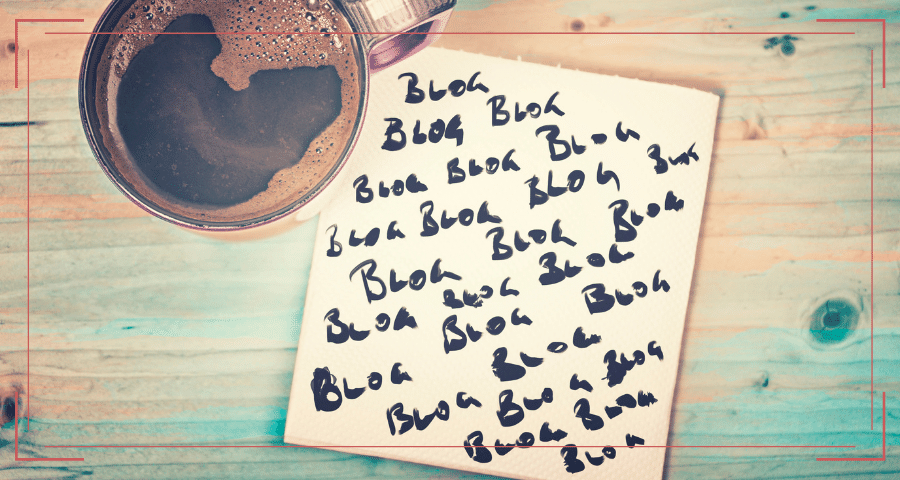 BLOG
BLOG BLOG
BLOG BLOG BLOG BLOG
BLOG BLOG BLOG
BLOG BLOG
BLOG BLOG BLOG
BLOG BLOG BLOG
BLOG BLOG
BLOG BLOG BLOG
BLOG BLOG
BLOG